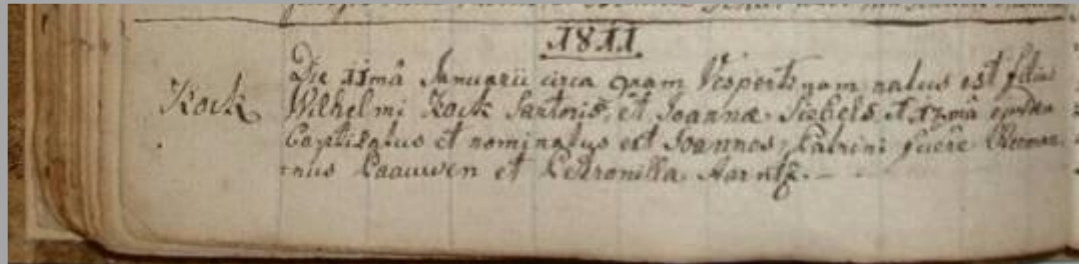 1811.
Kock
Die 11mâ Januarii circa 9nam Vespertinam natus est filius
Wilhelmi Kock Sartoris, et Joannæ Siebels, et 12mâ ejusdem
Baptizatus et nominatus est Joannes, Patrini fuere Herman-
nus Paauwen et Petronilla Aarntz.